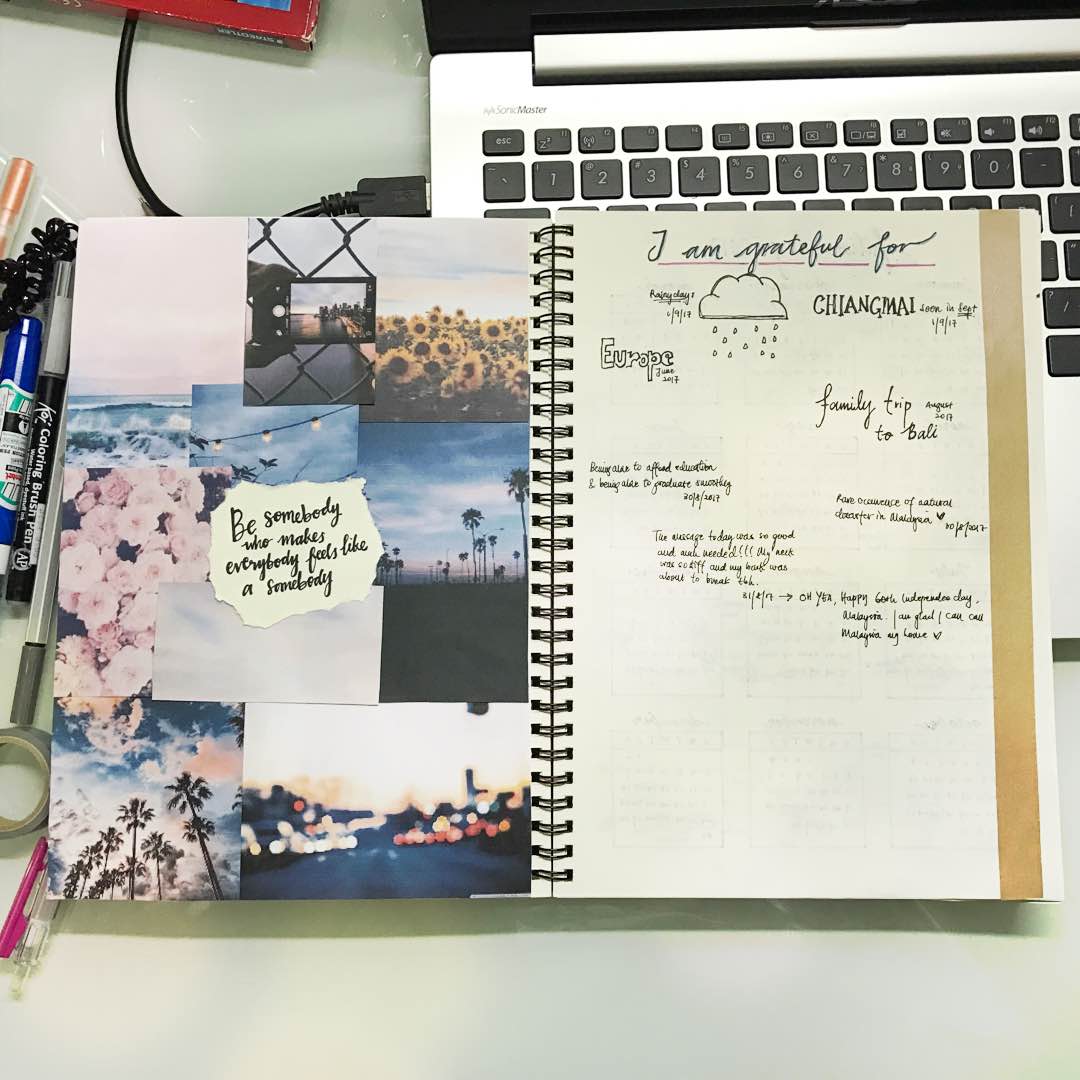 STAEDTLER
SonicMaster
esc
f1
f2
f3
f4
f5
f6
f7
f8
f9
f10
f11
f12
1
2
3
4
5
6
7
8
9
0
Coloring Brush Pen
AP
Be somebody
who makes
everybody feels like
a somebody
I am grateful for
Rainy days
1/9/17
CHIANGMAI soon in Sept
1/9/17
Europe
June
2017
family trip August
2017
to Bali
Being able to afford education
& being able to graduate smoothly
30/8/2017
Rare occurence of natural
disaster in Malaysia ♥
30/8/2017
The massage today was so good
and much needed!!! My neck
was so stiff and my back was
about to break tbh.
31/8/17 → OH YEA, Happy 60th Independence day,
Malaysia. I am glad I can call
Malaysia my home ♥